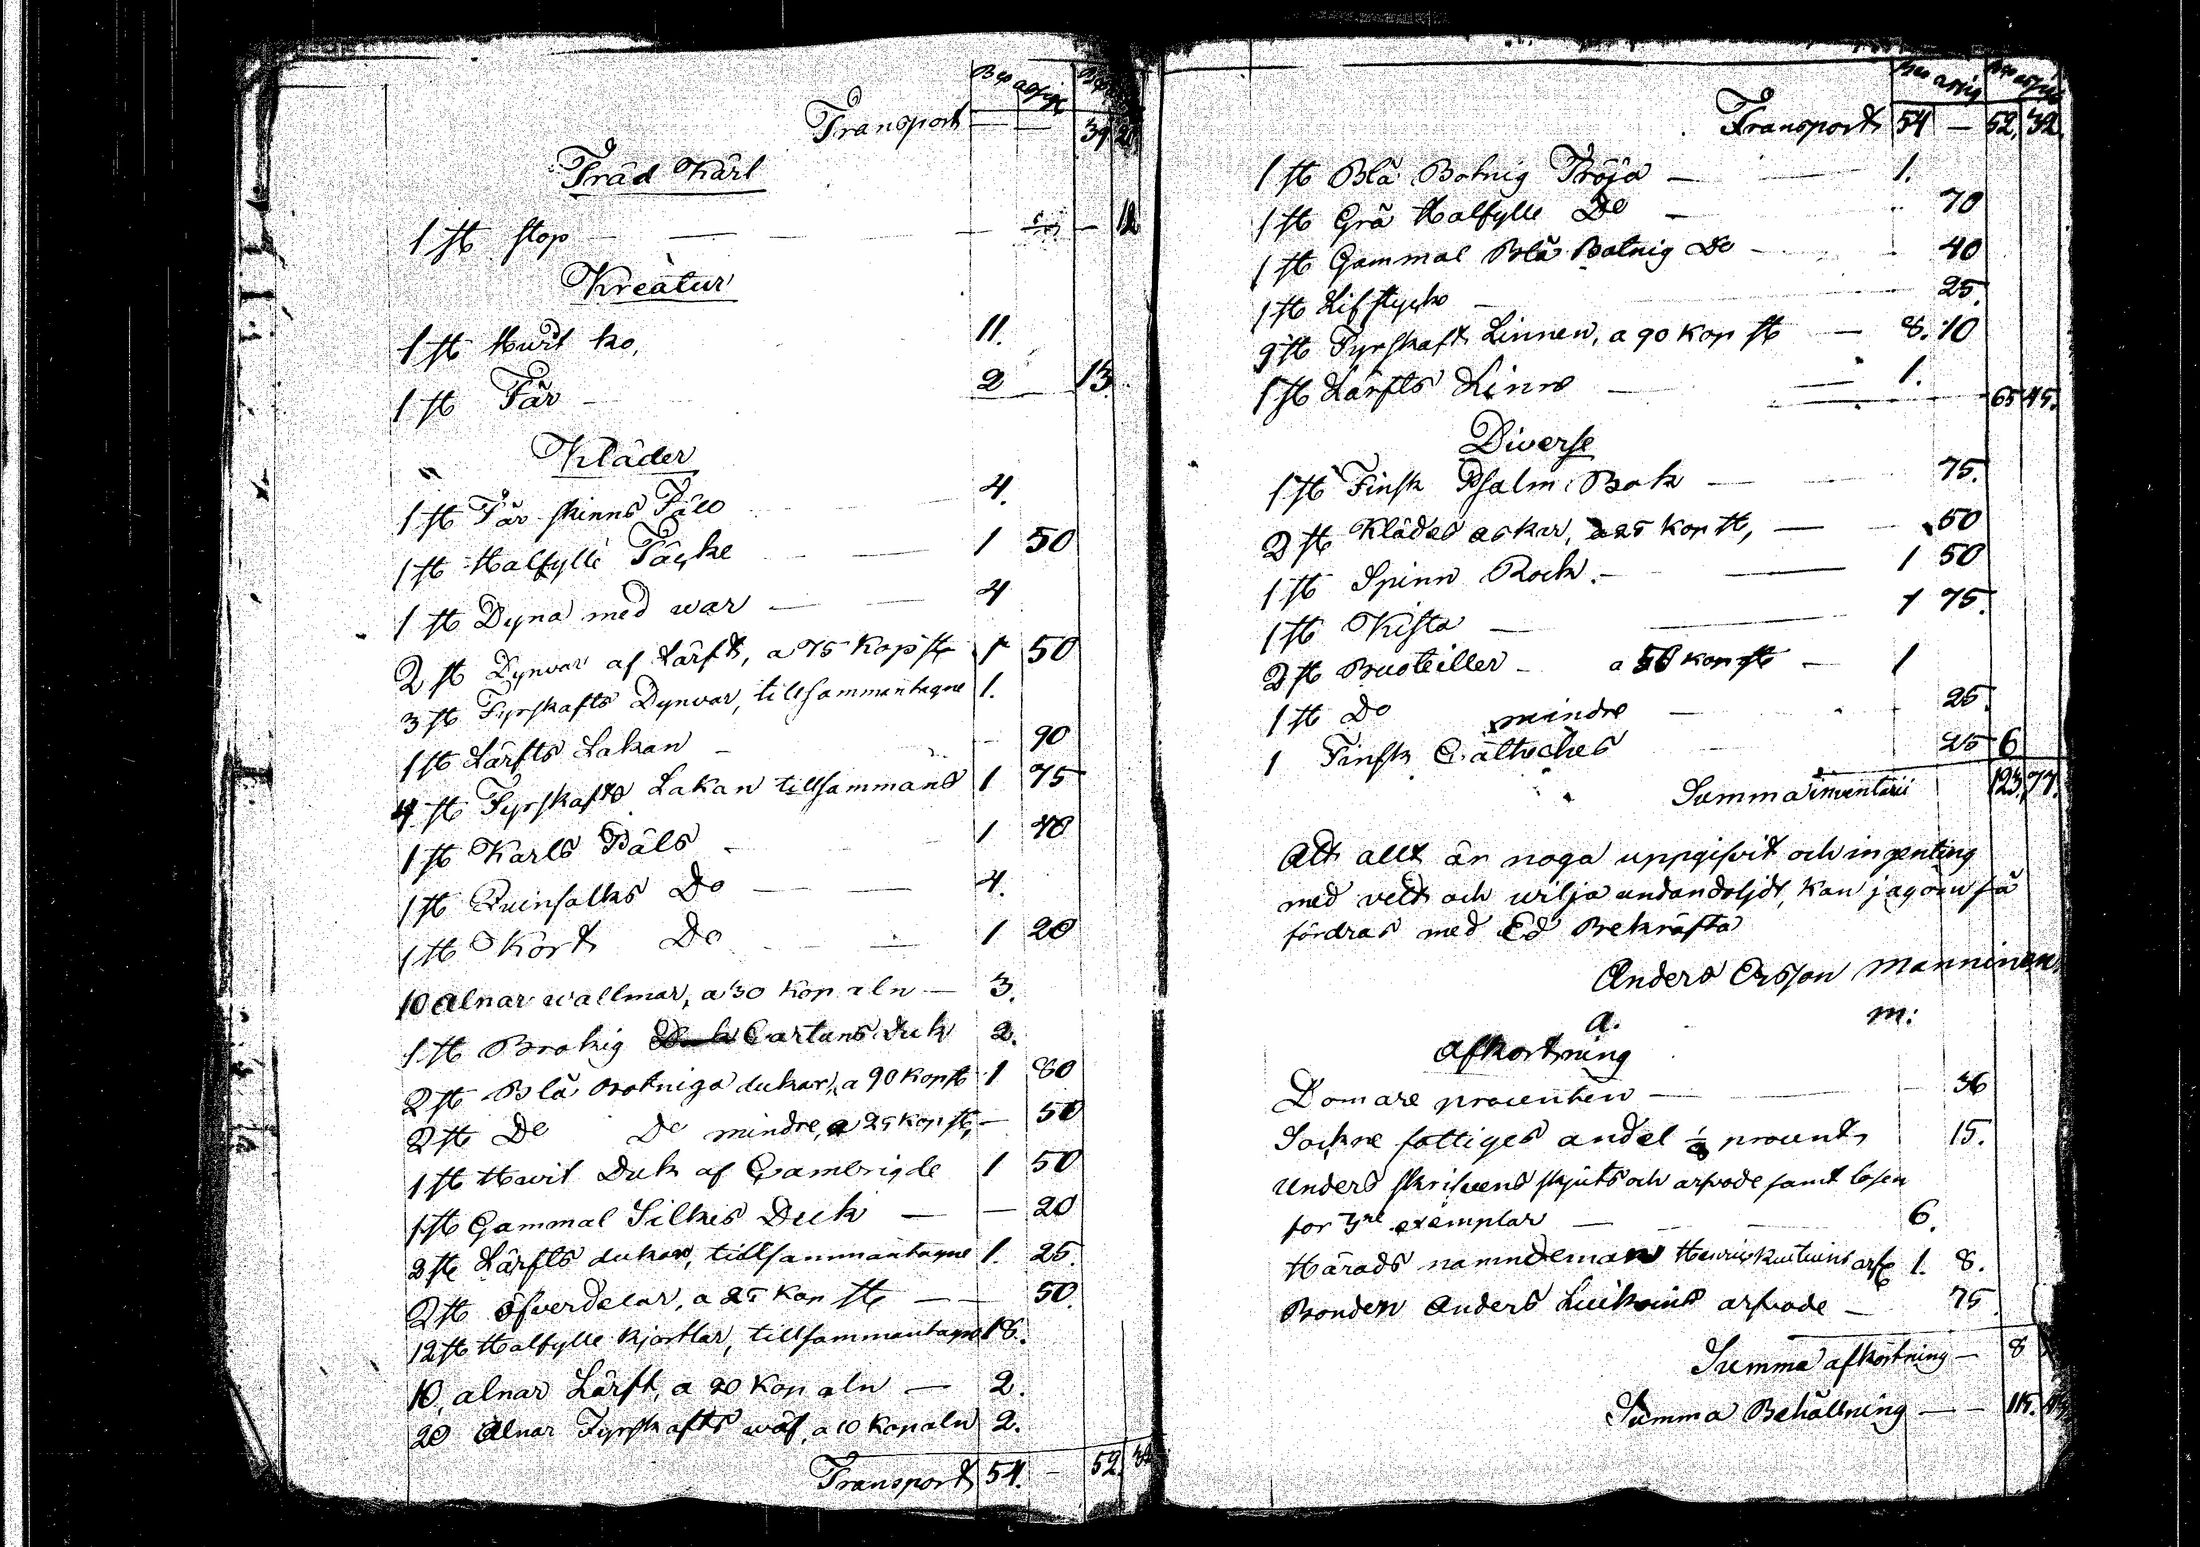 Transport — — 39 20
Träd Kärl
1 st stop — — — 12
Kreatur
1 st Hwit ko, 11.
1 st Får 2 13.
Kläder
1 st Får skinns Fäll 4.
1 st Halfylle Täcke 1 50
1 st Dyna med war — 4
2 st Dynvar af Lärft, a 75 Kop st 1 50
3 st Fyrskafts Dynvar, tillsammantagne 1.
1 st Lärfts Lakan — 90
4 st Fyrskafts Lakan tillsammans 1 75
1 st Karls Päls 1 70
1 st Quinfolks Do — 4.
1 st Kort Do — 1 20
10 Alnar wallmar, a 30 Kop aln — 3.
1 st Brokig Cartuns Duk 2.
2 st Blå Botniga dukar, a 90 Kop st 1 80
2 st Do Do mindre, a 25 Kop st, — 50
1 st Hwit Duk af Cambrigde 1 50
1 st Gammal Silkes Duk — — 20
3 st Lärfts dukar, tillsammantagne 1. 25
2 st öfverdelar, a 25 Kop st — 50.
12 st Halfylle Kjortlar, tillsammantagne 18.
10, alnar Lärft, a 20 Kop aln — 2.
20 Alnar Fyrskafts wäf, a 10 Kop aln 2.
Transport 54. — 52. 32
Transport 54 — 52, 32.
1 st Blå Botnig Tröja — 1.
1 st Grå Halfylle Do — 70
1 st Gammal Blå Botnig Do — 40
1 st Lifstycke — 25.
9 st Fyrskaft Linnen, a 90 Kop st — 8. 10
1 st Lärfts Linne — 1. 65 45.
Diverse
1 st Finsk Psalm Bok — 75.
2 st Klädes askar, a 25 Kop st, — 50
1 st Spinn Rock. — 1 50
1 st Kista — 1 75.
2 st Buoteiller — a 50 Kop st — 1
1 st Do mindre — 25.
1 Finsk Cätteches 25 6
Summa inventarii 123, 77.
Att allt är noga uppgifvit och ingenting
med vett och wilja undandoljdt, kan jag om så
fordras med Ed Bekräfta
Anders Ersson Manninen
A. M:
Afkortning
Domare procenten — 36
Sockne fattiges andel 1/8 procent 15.
Under skrifvens skjuts och arfvode samt lösen
for 3ne exemplar — 6.
Härads nämndeman Henric arf 1. 8.
Bonden Anders arfvode — 75
Summa afkortning — 8
Summa Behållning — — 115.